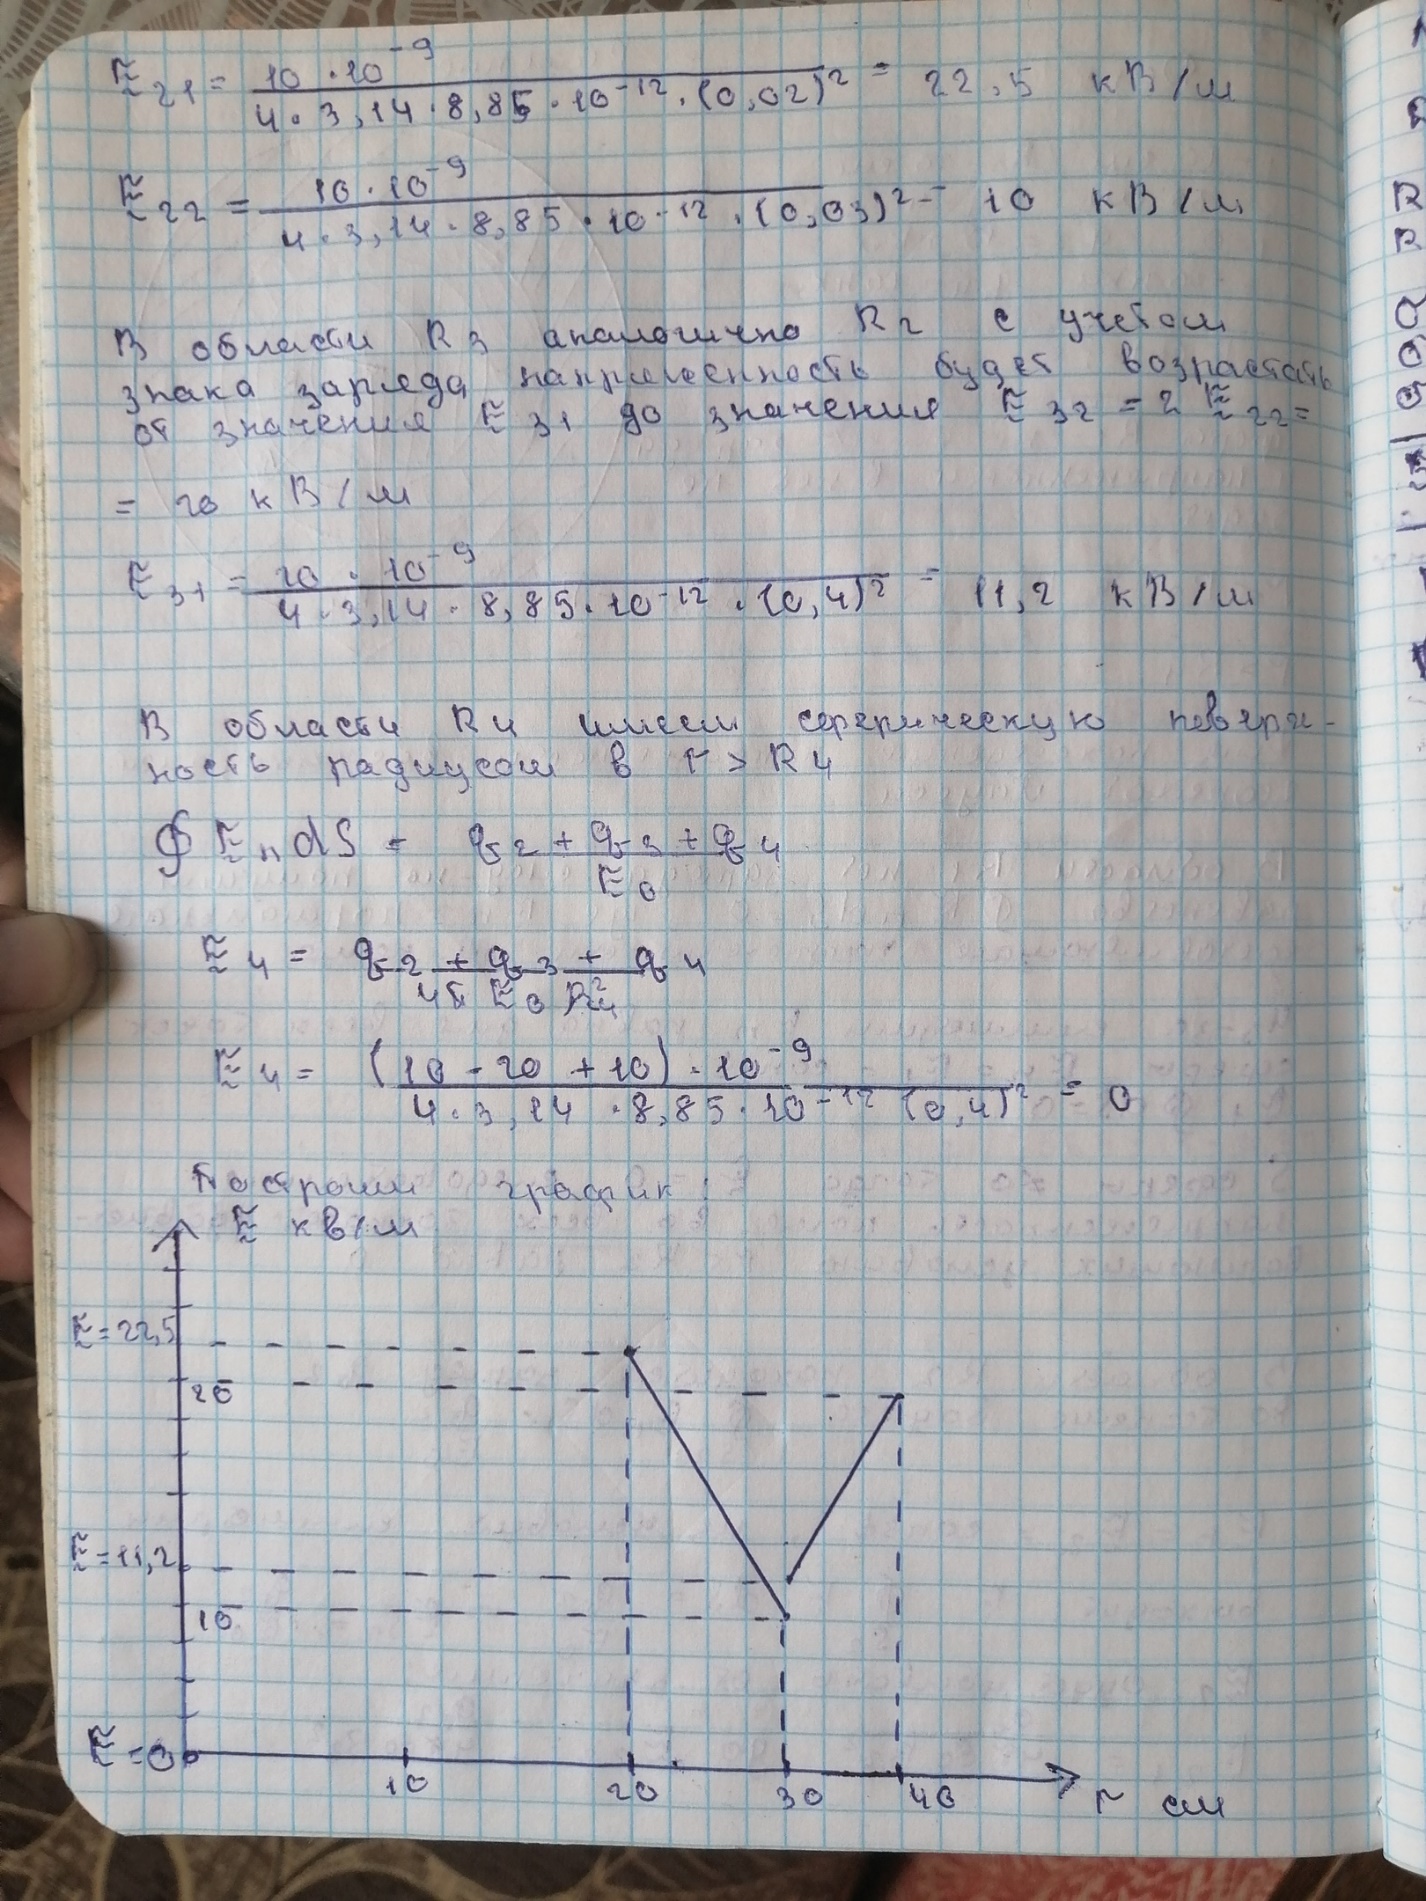 E₂₁ = 10 · 10⁻⁹ / 4 · 3,14 · 8,85 · 10⁻¹² · (0,02)² = 22,5 кВ/м
E₂₂ = 10 · 10⁻⁹ / 4 · 3,14 · 8,85 · 10⁻¹² · (0,03)² = 10 кВ/м
В области R₃ аналогично R₂ с учетом
знака заряда напряженность будет возрастать
от значения E₃₁ до значения E₃₂ = 2 E₂₂ =
= 20 кВ/м
E₃₁ = 20 · 10⁻⁹ / 4 · 3,14 · 8,85 · 10⁻¹² · (0,4)² = 11,2 кВ/м
В области R₄ имеем сферическую поверх-
ность радиусом в r > R₄
∮ EₙdS = q₂ + q₃ + q₄ / E₀
E₄ = q₂ + q₃ + q₄ / 4π E₀ R₄²
E₄ = (10 - 20 + 10) · 10⁻⁹ / 4 · 3,14 · 8,85 · 10⁻¹² (0,4)² = 0
Построим график:
E кв/м
E = 22,5
20
E = 11,2
10
E = 0
10 20 30 40 r см